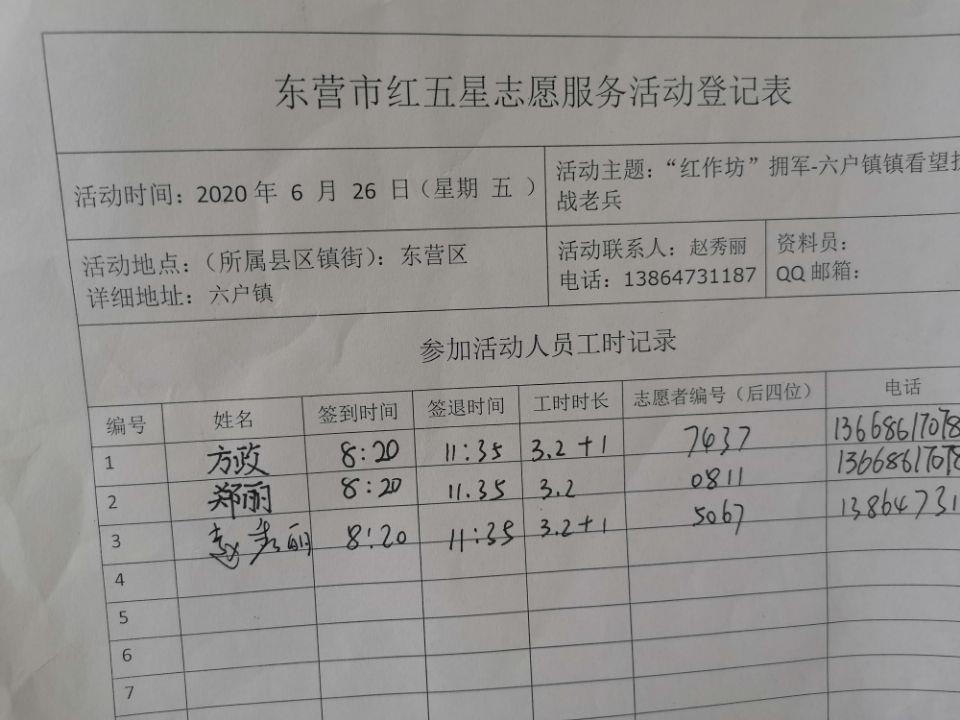 东营市红五星志愿服务活动登记表
活动时间：2020 年 6 月 26 日（星期 五 ）
活动主题：“红作坊”拥军-六户镇镇看望
战老兵
活动地点：（所属县区镇街）：东营区
详细地址：六户镇
活动联系人：赵秀丽
电话：13864731187
资料员：
QQ 邮箱：
参加活动人员工时记录
编号 姓名 签到时间 签退时间 工时时长 志愿者编号（后四位） 电话
1 方政 8:20 11:35 3.2+1 7437 13668617078
2 郑丽 8:20 11.35 3.2 0811 13668617078
3 赵秀丽 8:20 11:35 3.2+1 5067 13864731
4
5
6
7